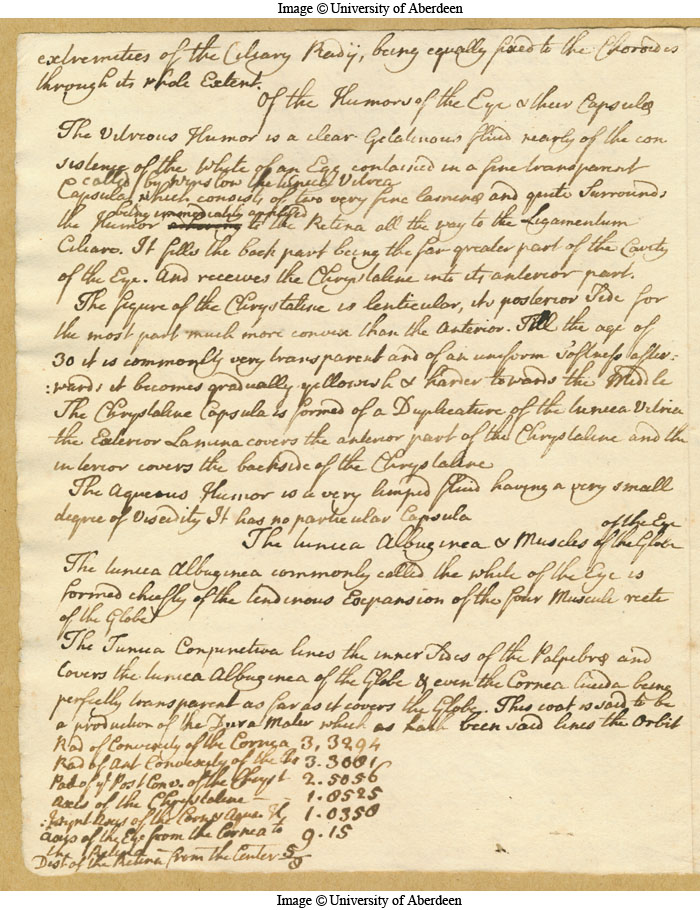 Image © University of Aberdeen
extremities of the Ciliary Radij, being equally fixed to the Choroides
through its whole Extent.
Of the Humors of the Eye & their Capsulæ
The Vitreous Humor is a clear Gelatinous fluid nearly of the con
sistence of the Whyte of an Egg contained in a fine transparent
called by Winslow the tunica Vitrea
Capsula, which consists of two very fine laminæ and quite Surrounds
being immediately applied
the Humor to the Retina all the way to the Ligamentum
Ciliare. It fills the back part being the far greater part of the Cavity
of the Eye. And receives the Chrystaline into its anterior part.
The figure of the Chrystaline is lenticular, its posterior Side for
the most part much more convex than the Anterior. Till the age of
30 it is commonly very transparent and of an uniform Softness after:
:wards it becomes gradually yellowish & harder towards the Middle
The Chrystaline Capsula is formed of a Duplicature of the tunica Vitrea
the Exterior Lamina covers the anterior part of the Chrystaline and the
interior covers the backside of the Chrystaline
The Aqueous Humor is a very limpid fluid having a very small
degree of Viscidity It has no particular Capsula
of the Eye
The tunica Albuginea & Muscles of the Globe
The tunica Albuginea commonly called the white of the Eye is
formed chiefly of the tendinous Expansion of the four Musculi recti
of the Globe
The Tunica Conjunctiva lines the inner Sides of the Palpebræ and
Covers the tunica Albuginea of the Globe & even the Cornea lucida being
perfectly transparent as far as it covers the Globe. This coat is said to be
a production of the Dura Mater which as hath been said lines the Orbit
Rad of Convexity of the Cornea 3,3294
Rad of Ant Convexity of the 3.3081
Rad of yᵉ Post Conv. of the Chryst 2.5056
Axis of the Chrystaline — 1.8525
Axys of the Cornea Aque. 1.0358
Axys of the Eye from the Cornea to 9.15
the Retina —
Dist of the Retina from the Center 5/8
Image © University of Aberdeen